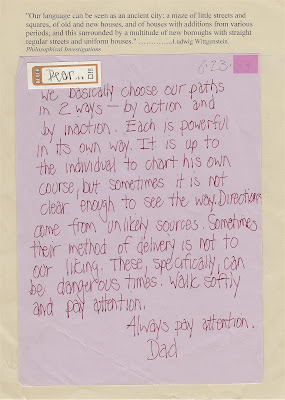 "Our language can be seen as an ancient city; a maze of little streets and
squares, of old and new houses, and of houses with additions from various
periods; and this surrounded by a multitude of new boroughs with straight
regular streets and uniform houses." ...............Ludwig Wittgenstein.
Philosophical Investigations
Dear...
6.23.
we basically choose our paths
in 2 ways — by action and
by inaction. Each is powerful
in its own way. It is up to
the individual to chart his own
course, but sometimes it is not
clear enough to see the way. Directions
come from unlikely sources. Sometimes
their method of delivery is not to
our liking. These, specifically, can
be dangerous times. Walk softly
and pay attention.
Always pay attention.
Dad